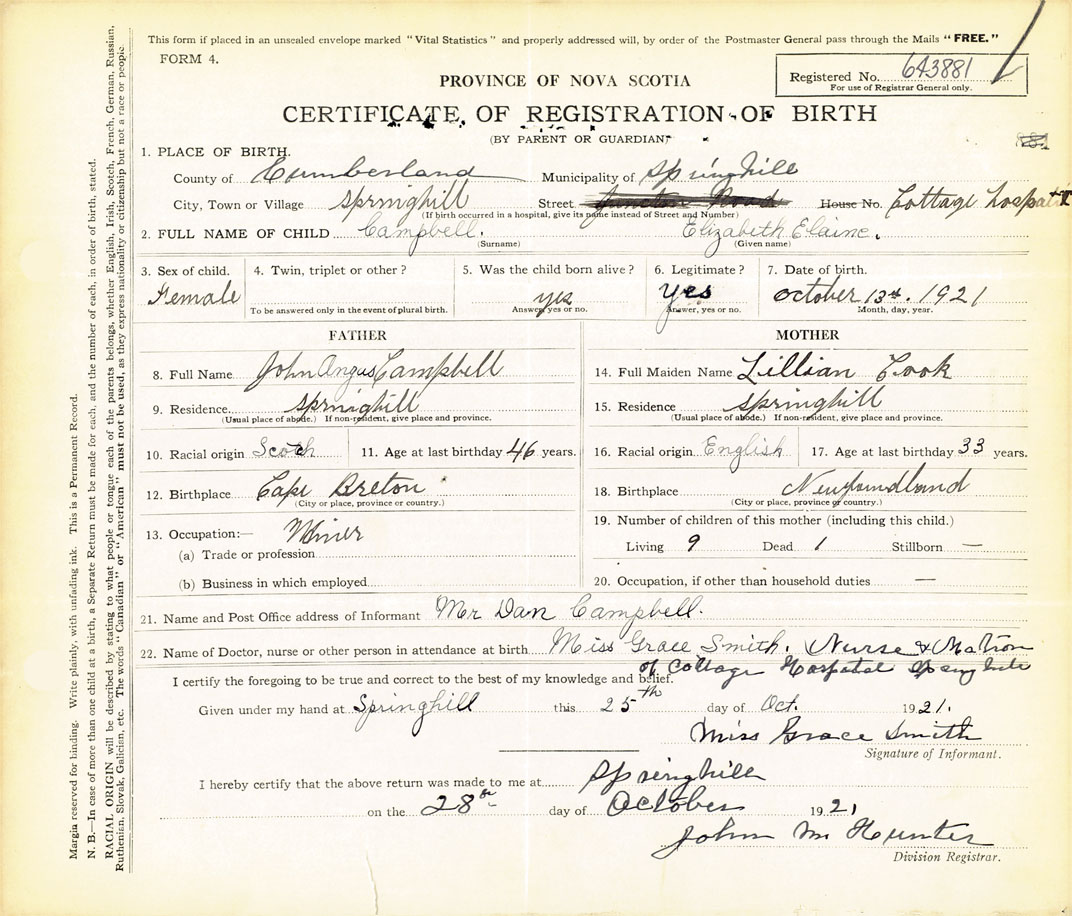 This form if placed in an unsealed envelope marked "Vital Statistics" and properly addressed will, by order of the Postmaster General pass through the Mails "FREE."
FORM 4.
Registered No. 643881
For use of Registrar General only.
PROVINCE OF NOVA SCOTIA
CERTIFICATE OF REGISTRATION OF BIRTH
(BY PARENT OR GUARDIAN)
1. PLACE OF BIRTH.
County of Cumberland Municipality of Springhill
City, Town or Village Springhill Street Junction Road House No. Cottage Hospital
(If birth occurred in a hospital, give its name instead of Street and Number)
2. FULL NAME OF CHILD Campbell. Elizabeth Elaine.
(Surname) (Given name)
3. Sex of child. 4. Twin, triplet or other? 5. Was the child born alive? 6. Legitimate? 7. Date of birth.
Female yes yes October 13th. 1921
To be answered only in the event of plural birth. Answer, yes or no. Answer, yes or no. Month, day, year.
FATHER
8. Full Name John Angus Campbell
9. Residence Springhill
(Usual place of abode.) If non-resident, give place and province.
10. Racial origin Scotch 11. Age at last birthday 46 years.
12. Birthplace Cape Breton
(City or place, province or country.)
13. Occupation:— Miner
(a) Trade or profession
(b) Business in which employed
MOTHER
14. Full Maiden Name Lillian Cook
15. Residence Springhill
(Usual place of abode.) If non-resident, give place and province.
16. Racial origin English 17. Age at last birthday 33 years.
18. Birthplace Newfoundland
(City or place, province or country.)
19. Number of children of this mother (including this child.)
Living 9 Dead 1 Stillborn —
20. Occupation, if other than household duties —
21. Name and Post Office address of Informant Mr Dan Campbell.
22. Name of Doctor, nurse or other person in attendance at birth Miss Grace Smith. Nurse & Matron
of Cottage Hospital Springhill
I certify the foregoing to be true and correct to the best of my knowledge and belief.
Given under my hand at Springhill this 25th day of Oct. 1921.
Miss Grace Smith
Signature of Informant.
I hereby certify that the above return was made to me at Springhill
on the 28th day of October 1921
John M Hunter
Division Registrar.
Margin reserved for binding. Write plainly, with unfading ink. This is a Permanent Record.
N. B.—In case of more than one child at a birth, a Separate Return must be made for each, and the number of each, in order of birth, stated.
RACIAL ORIGIN will be described by stating to what people or tongue each of the parents belongs, whether English, Irish, Scotch, French, German, Russian,
Ruthenian, Slovak, Galician, etc. The words "Canadian" or "American" must not be used, as they express nationality or citizenship but not a race or people.